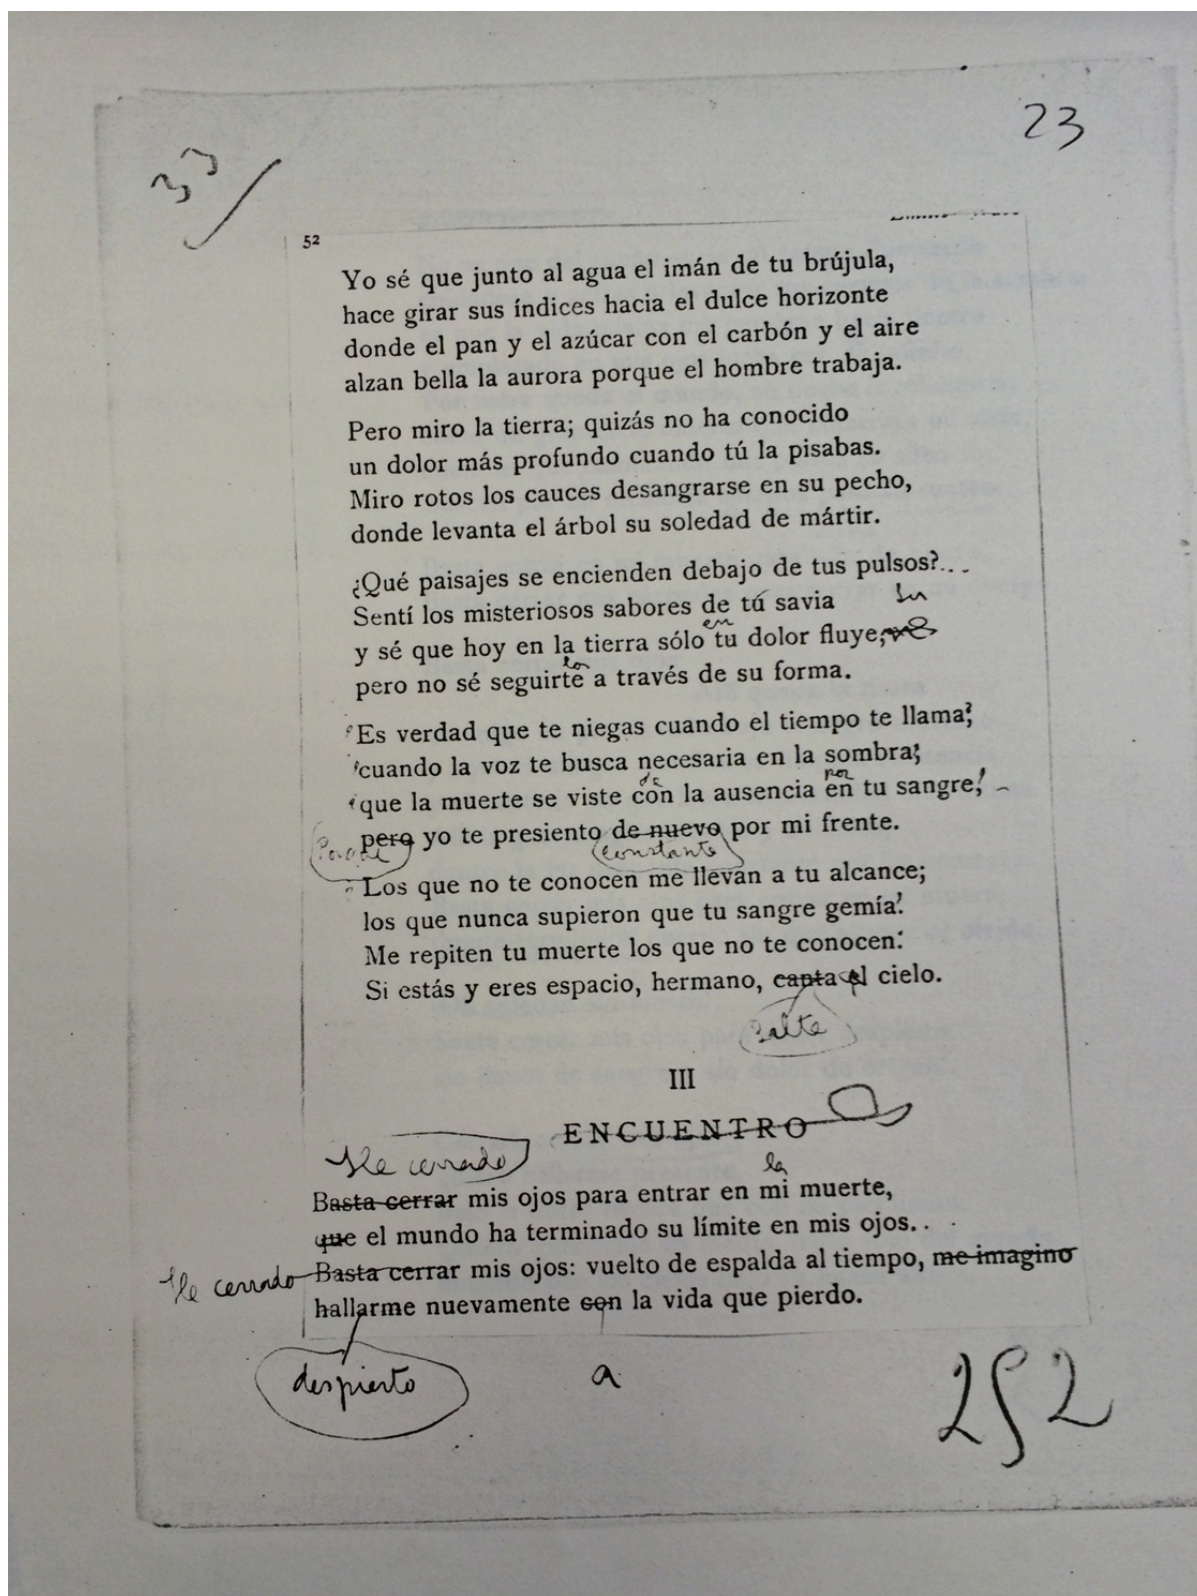 23
33/
52
Yo sé que junto al agua el imán de tu brújula,
hace girar sus índices hacia el dulce horizonte
donde el pan y el azúcar con el carbón y el aire
alzan bella la aurora porque el hombre trabaja.
Pero miro la tierra; quizás no ha conocido
un dolor más profundo cuando tú la pisabas.
Miro rotos los cauces desangrarse en su pecho,
donde levanta el árbol su soledad de mártir.
¿Qué paisajes se encienden debajo de tus pulsos?...
Sentí los misteriosos sabores de tú savia
su
en
y sé que hoy en la tierra sólo tu dolor fluye,
los
pero no sé seguirte a través de su forma.
Es verdad que te niegas cuando el tiempo te llama;
cuando la voz te busca necesaria en la sombra;
de por
que la muerte se viste con la ausencia en tu sangre,
pero yo te presiento de nuevo por mi frente.
Porque constante
Los que no te conocen me llevan a tu alcance;
los que nunca supieron que tu sangre gemía.
Me repiten tu muerte los que no te conocen:
Si estás y eres espacio, hermano, capta el cielo.
salte
III
ENCUENTRO
He cerrado la
Basta cerrar mis ojos para entrar en mi muerte,
que el mundo ha terminado su límite en mis ojos...
He cerrado Basta cerrar mis ojos: vuelto de espalda al tiempo, me imagino
hallarme nuevamente con la vida que pierdo.
despierto a
252